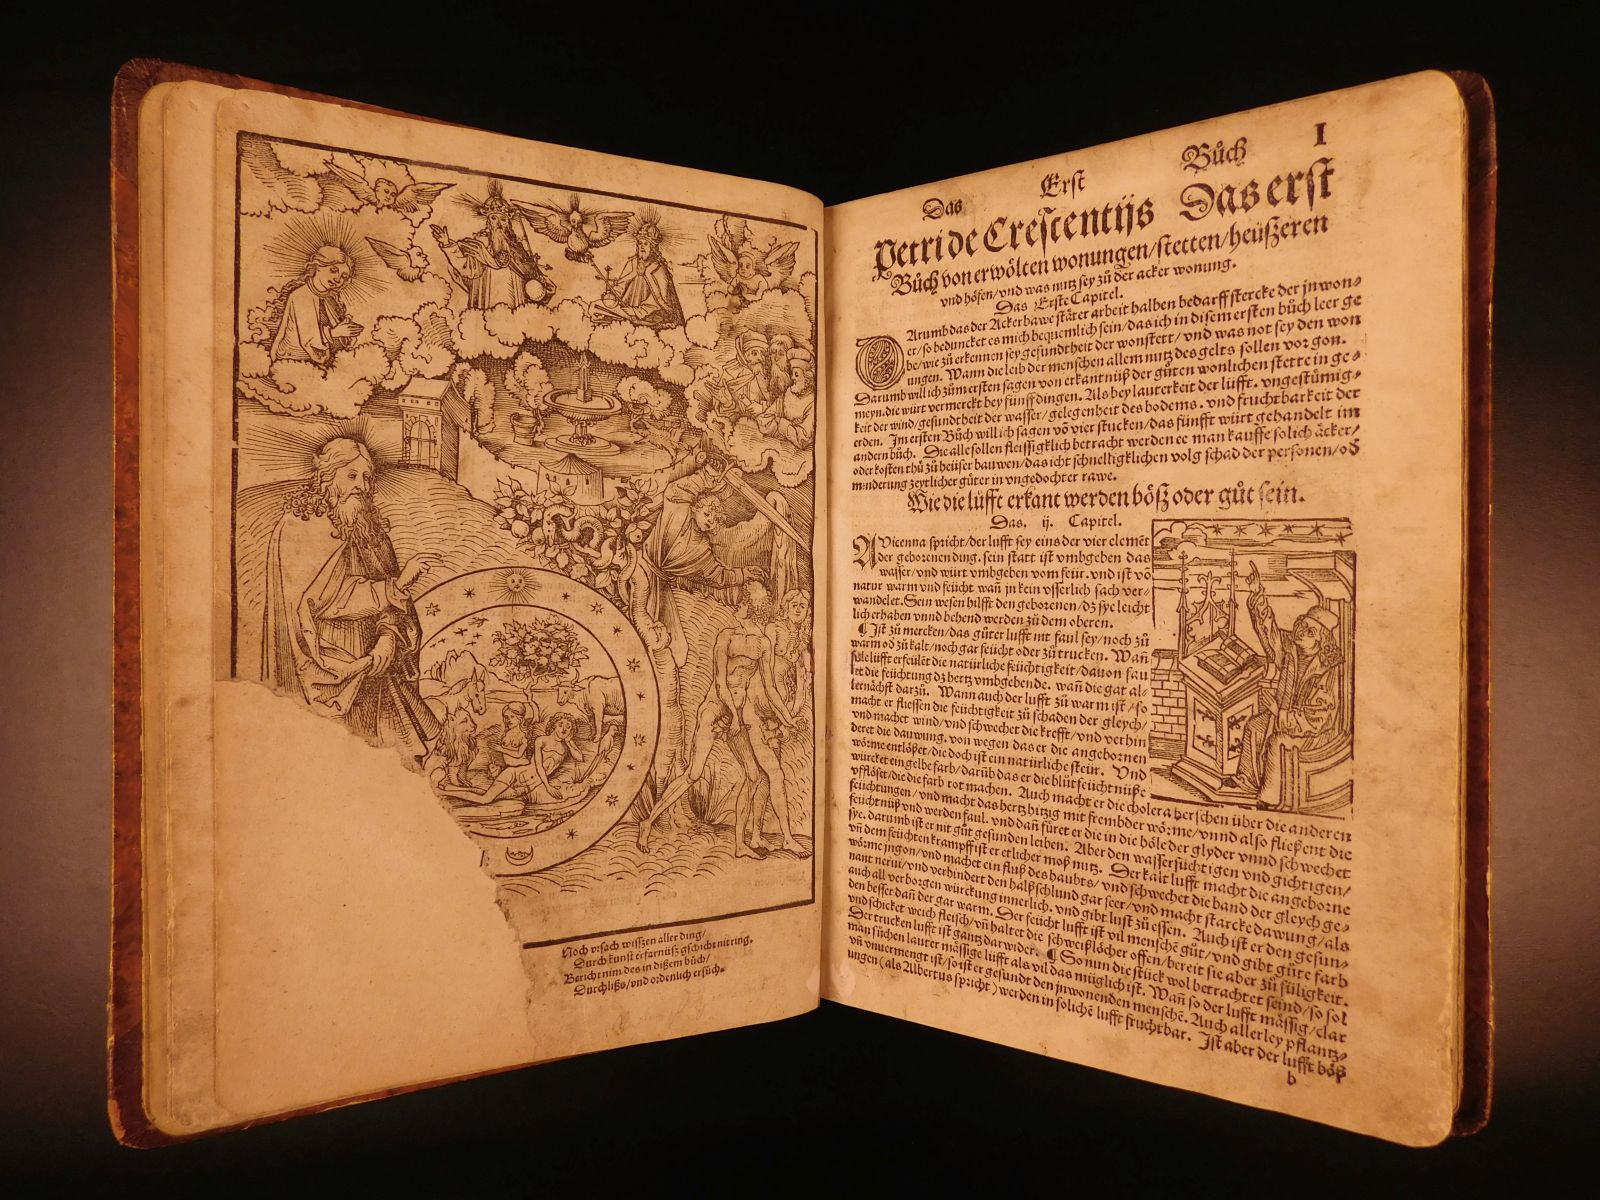 Noch vrsach wisszen aller ding/
Durch kunst erfarnüsz gschicht nit ring.
Bericht nim des in diszem bůch/
Durchlisz/vnd ordenlich ersůch.
Das Erst Bůch I
Petri de Crescentijs Das erst
Bůch von erwölten wonungen/stetten/heüszeren
vnd höfen/vnd was nutz sey zů der acker wonung.
Das Erste Capitel.
DArumb das der Ackerbawe stäter arbeit halben bedarff stercke der jnwon-
er/so beduncket es mich bequemlich sein/das ich in disem ersten bůch leer ge
be/wie zů erkennen sey gesundtheit der wonstett/vnd was not sey den won
ungen. Wann die leib der menschen allem nutz des gelts sollen vor gon.
Darumb will ich zům ersten sagen von erkantnüß der gůten wonlichen stette in ge-
meyn. die würt vermerckt bey fünff dingen. Als bey lauterkeit der lüfft. vngestümig-
keit der wind/gesundtheit der wasser/gelegenheit des bodems. vnd fruchtbarkeit der
erden. Im ersten Bůch will ich sagen vō vier stucken/das fünfft würt gehandelt im
andern bůch. Die alle sollen fleissigklich betracht werden ee man kauffe solich äcker/
oder kosten thů zů heüser bauwen/das icht schnelligklichen volg schad der personen/od
minderung zeytlicher gůter in vngedochter rawe.
Wie die lüfft erkant werden bösz oder gůt sein.
Das. ij. Capitel.
AVicenna spricht/der lufft sey eins der vier elemēt
der gebornen ding. sein statt ist vmbgeben das
wasser/vnd würt vmbgeben vom feür. vnd ist vō
natur warm vnd feücht wañ jn kein vsserlich sach ver-
wandelet. Sein wesen hilfft den geborenen/dz sye leicht
lich erhaben vnnd behend werden zů dem oberen.
¶ Ist zů mercken/das gůter lufft nit faul sey/noch zů
warm od zů kalt/noch gar feücht oder zů trucken. Wañ
fule lüfft erfeület die natürliche feüchtigkeit/dauon fau
let die feüchtung dz hertz vmbgebende. wañ die gat al-
lernächst darzů. Wann auch der lufft zů warm ist/so
macht er fliessen die feüchtigkeit zů schaden der gleych/
vnd machet wind/vnd schwechet die krefft/vnd verhin
deret die dauwung. von wegen das er die angebornen
wörme entlößet/die doch ist ein natürliche stein. Vnd
würcket ein gelbe farb/darüb das er die blůtfeüchtnüße
vfflöset/die die farb rot machen. Auch macht er die cholera herschen über die anderen
feüchtungen/vnd macht das hertz hitzig mit frembder wörme/vnnd also fließent die
feüchtnüß vnd werden faul. vnd dañ füret er die in die höle der glyder vnnd schwechet
sye. darumb ist er nit gůt gesunden leiben. Aber den wassersüchtigen vnd gichtigen/
vñ dem feüchten krampff ist er etlicher moß nutz. Der kalt lufft macht die angeborne
wörme jngon/vnd machet ein fluß des haubts/vnd schwechet die band der gleych ge-
nant nerui/vnd verhindert den halßschlund gar seer/vnd macht starcke dawung/als
auch all verborgen würckung innerlich. vnd gibt lust zů essen. Auch ist er den gesun-
den besser dañ der gar warm. Der feücht lufft ist vil mensche gůt/vnd gibt gůte farb
vnd schicket weich fleisch/vñ haltet die schweißlöcher offen/bereit sie aber zů füligkeit.
Der trucken lufft ist gantz dar wider. ¶ So nun die stück wol betrachtet seind/so sol
man sůchen lauter mässige lüfft als vil das müglich ist. Wañ so der lufft mässig/clar
vñ vnuermengt ist/so ist er gesundt den jnwonenden menschē. Auch allerley pflantz-
ungen (als Albertus spricht) werden in solichē lufft fruchtbar. Ist aber der lufft böß
b